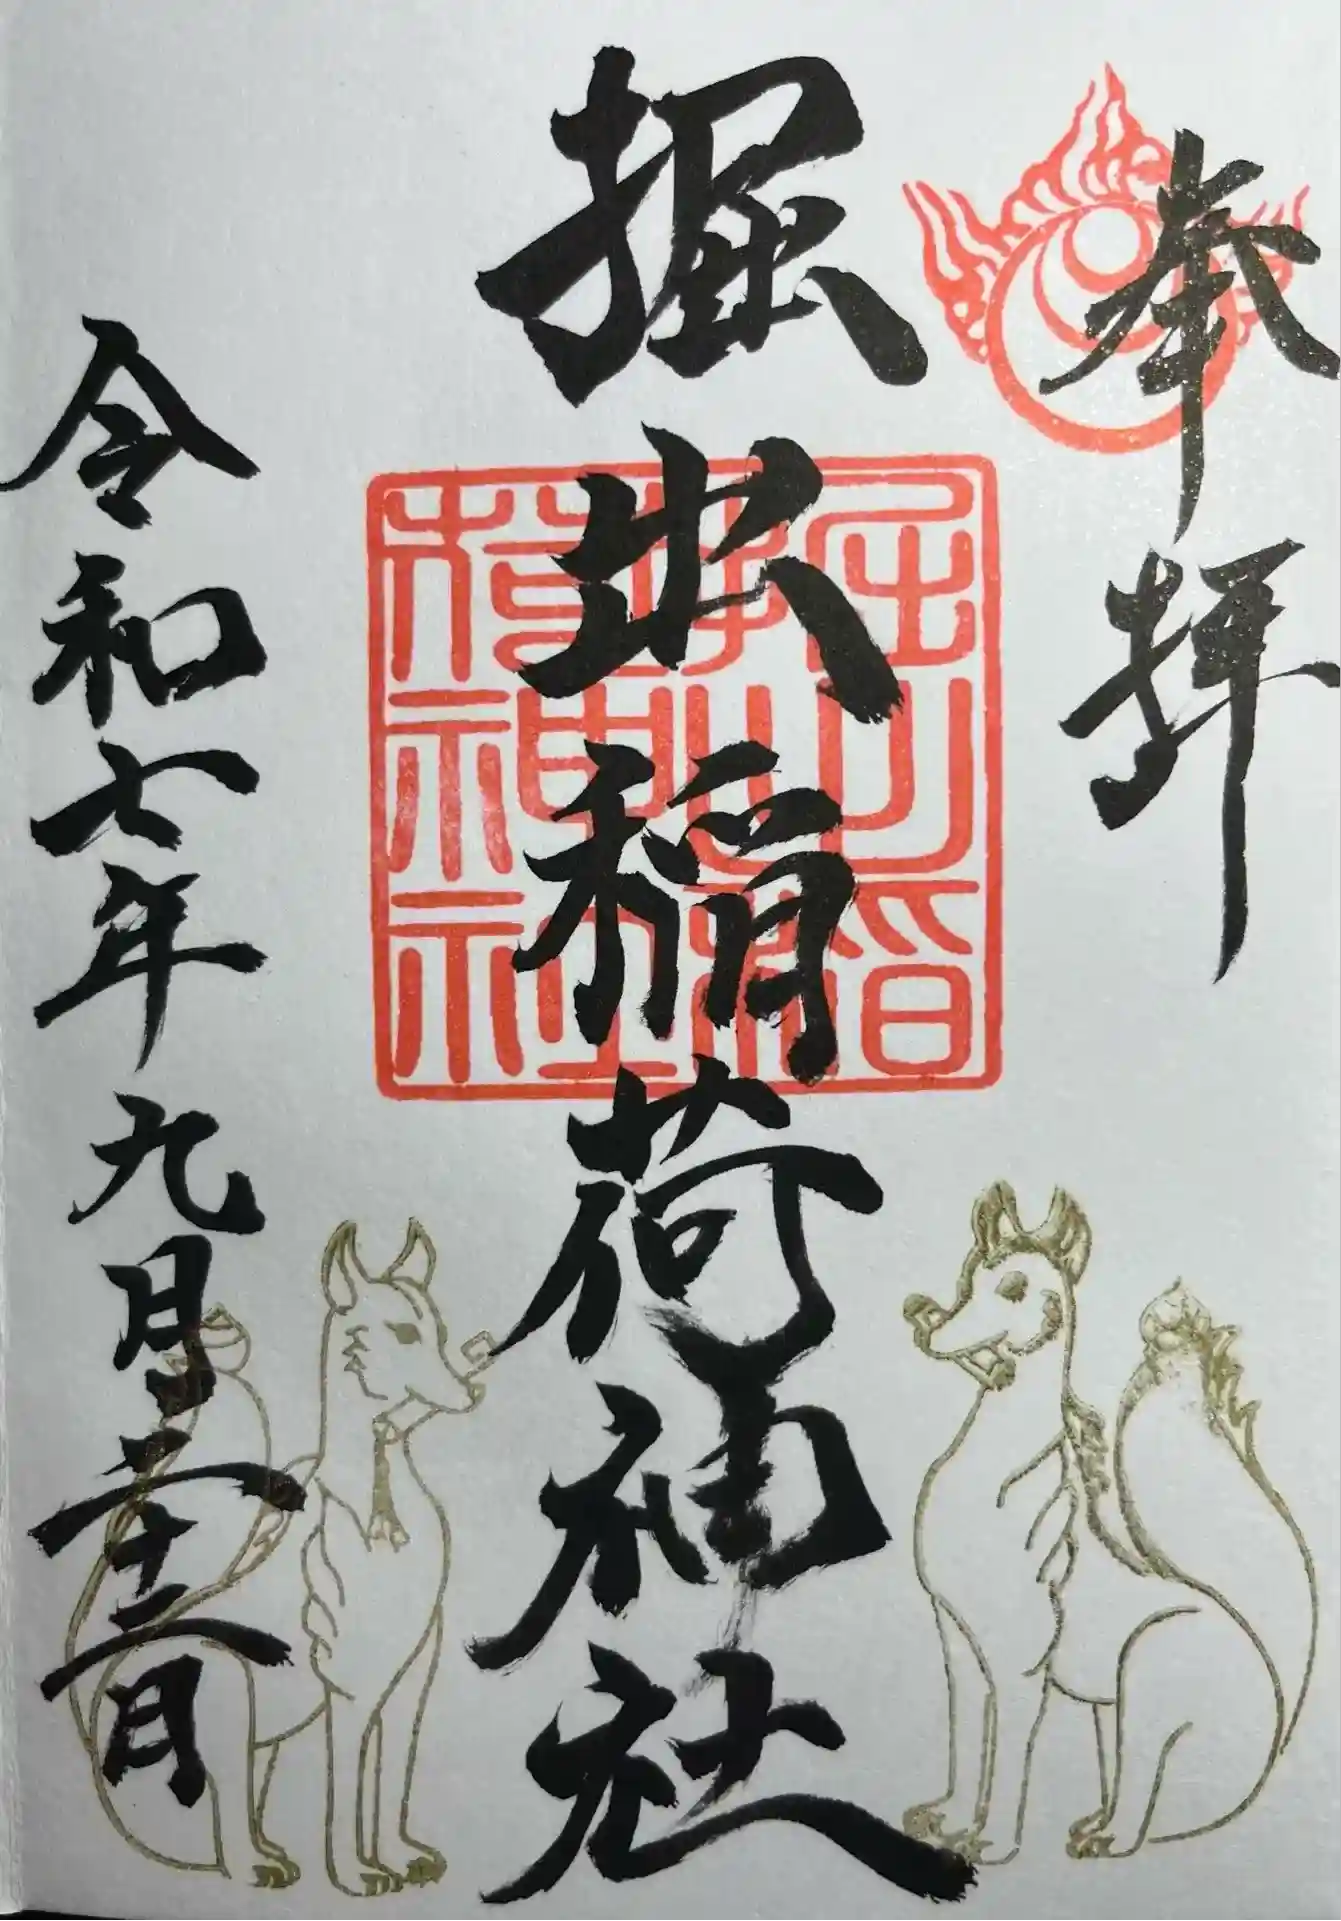 奉拝
掘出稲荷神社
掘出稲
荷神社
令和七年九月二十二日